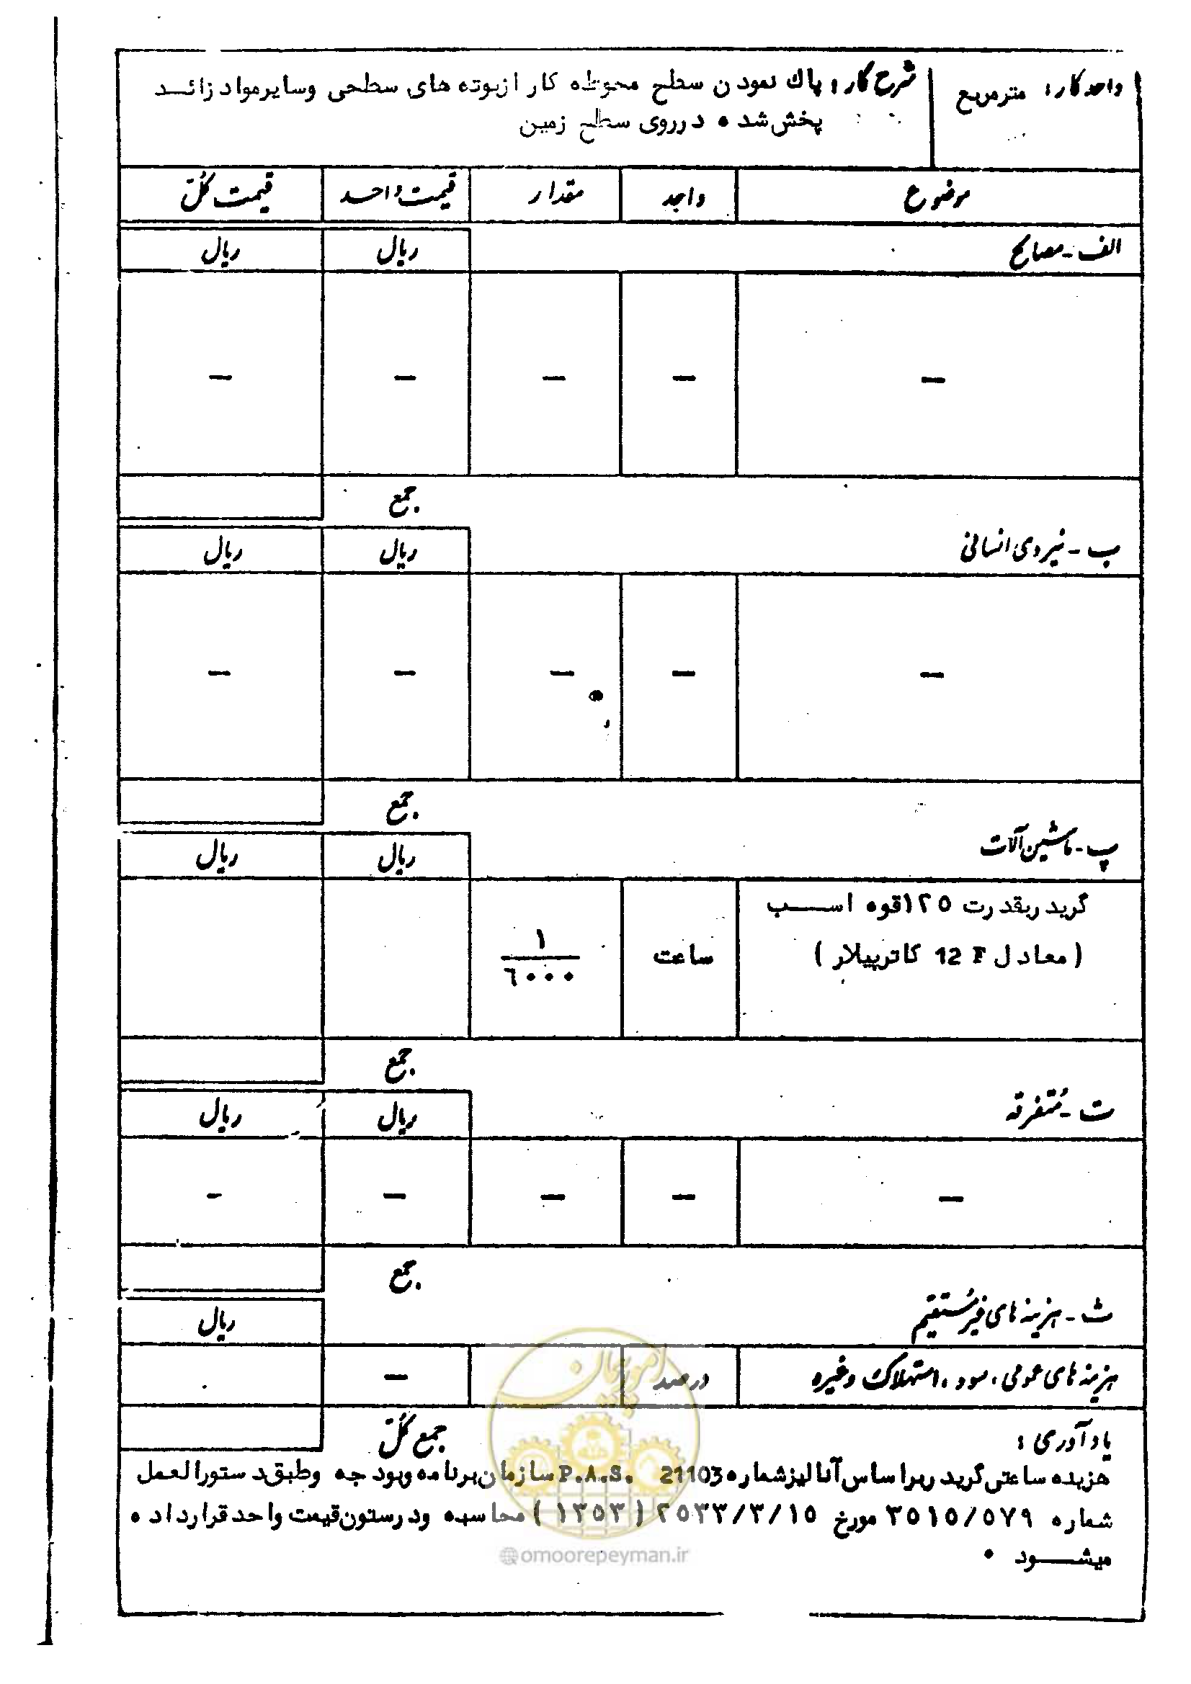 واحد کار: مترمربع
شرح کار: پاك نمودن سطح محوطه کار ازبوته های سطحی وسایرمواد زائــد
پخش شده درروی سطح زمین
موضوع واحد مقدار قیمت واحد قیمت کلّ
الف - مصالح ریال ریال
— — — — —
جمع
ب - نیروی انسانی ریال ریال
— — — — —
جمع
پ - ماشین آلات ریال ریال
گریدربقدرت ۱۲۵قوه اســـب
(معادل 12 F کاترپیلار) ساعت ۱/۶۰۰۰
جمع
ت - مُتفرقه ریال ریال
— — — — -
جمع
ث - هزینه های غیرمُستقیم ریال
هزینه های عمومی، سود، استهلاک وغیره درصد —
جمع کُلّ
یادآوری:
هزینه ساعتی گریدربراساس آنالیزشماره 21103 P.A.S. سازمان برنامه وبودجه وطبق دستورالعمل
شماره ۳۵۱۵/۵۷۹ مورخ ۲۵۳۳/۳/۱۵ (۱۳۵۳) محاسبه ودرستون قیمت واحد قرارداده
میشـــود .
امور پیمان
@omoorepeyman.ir